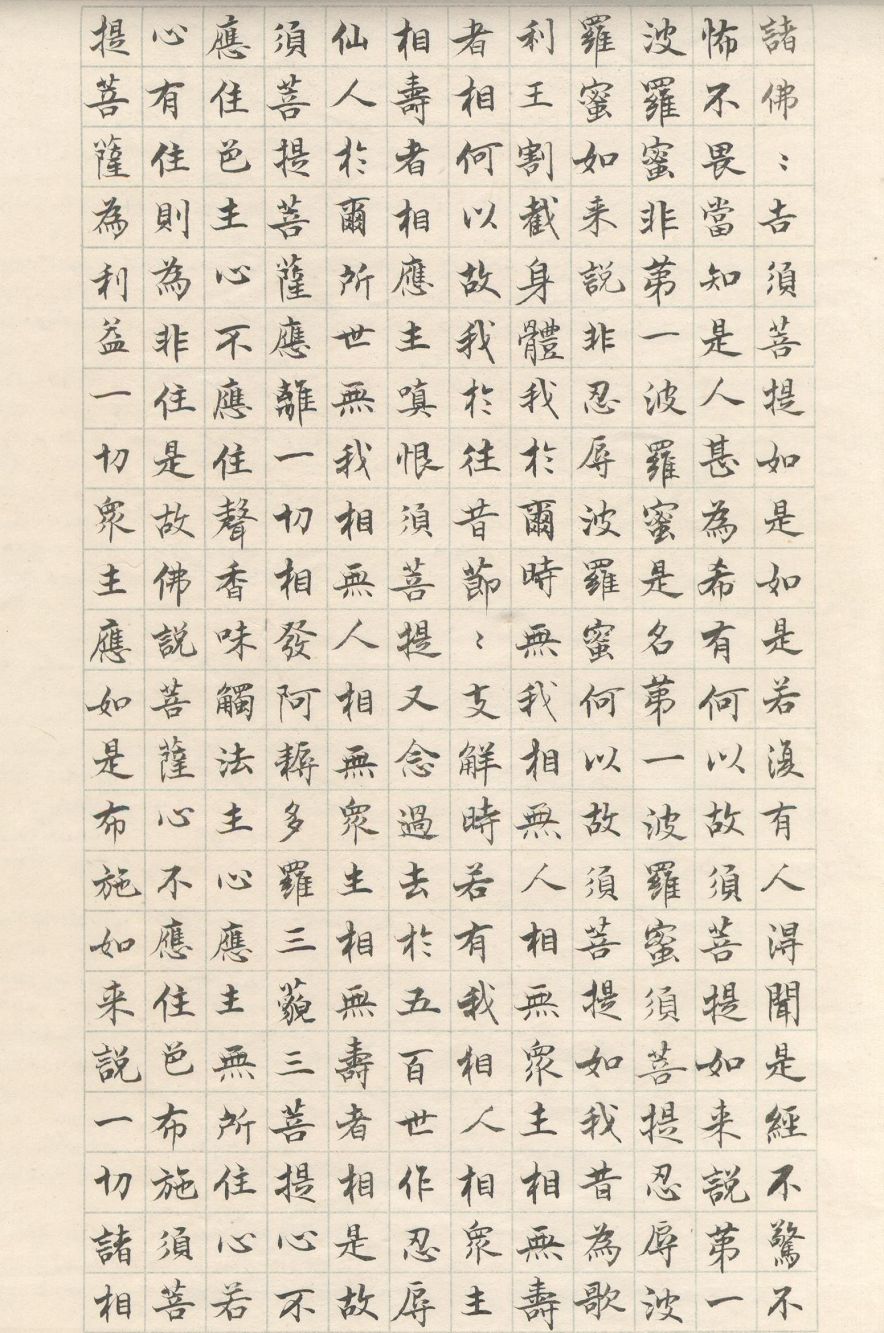 諸佛〻告須菩提如是如是若復有人得聞是經不驚不
怖不畏當知是人甚為希有何以故須菩提如来說第一
波羅蜜非第一波羅蜜是名第一波羅蜜須菩提忍辱波
羅蜜如来說非忍辱波羅蜜何以故須菩提如我昔為歌
利王割截身體我於爾時無我相無人相無眾生相無壽
者相何以故我於往昔節〻支解時若有我相人相眾生
相壽者相應生嗔恨須菩提又念過去於五百世作忍辱
仙人於爾所世無我相無人相無眾生相無壽者相是故
須菩提菩薩應離一切相發阿耨多羅三藐三菩提心不
應住色生心不應住聲香味觸法生心應生無所住心若
心有住則為非住是故佛說菩薩心不應住色布施須菩
提菩薩為利益一切眾生應如是布施如来說一切諸相